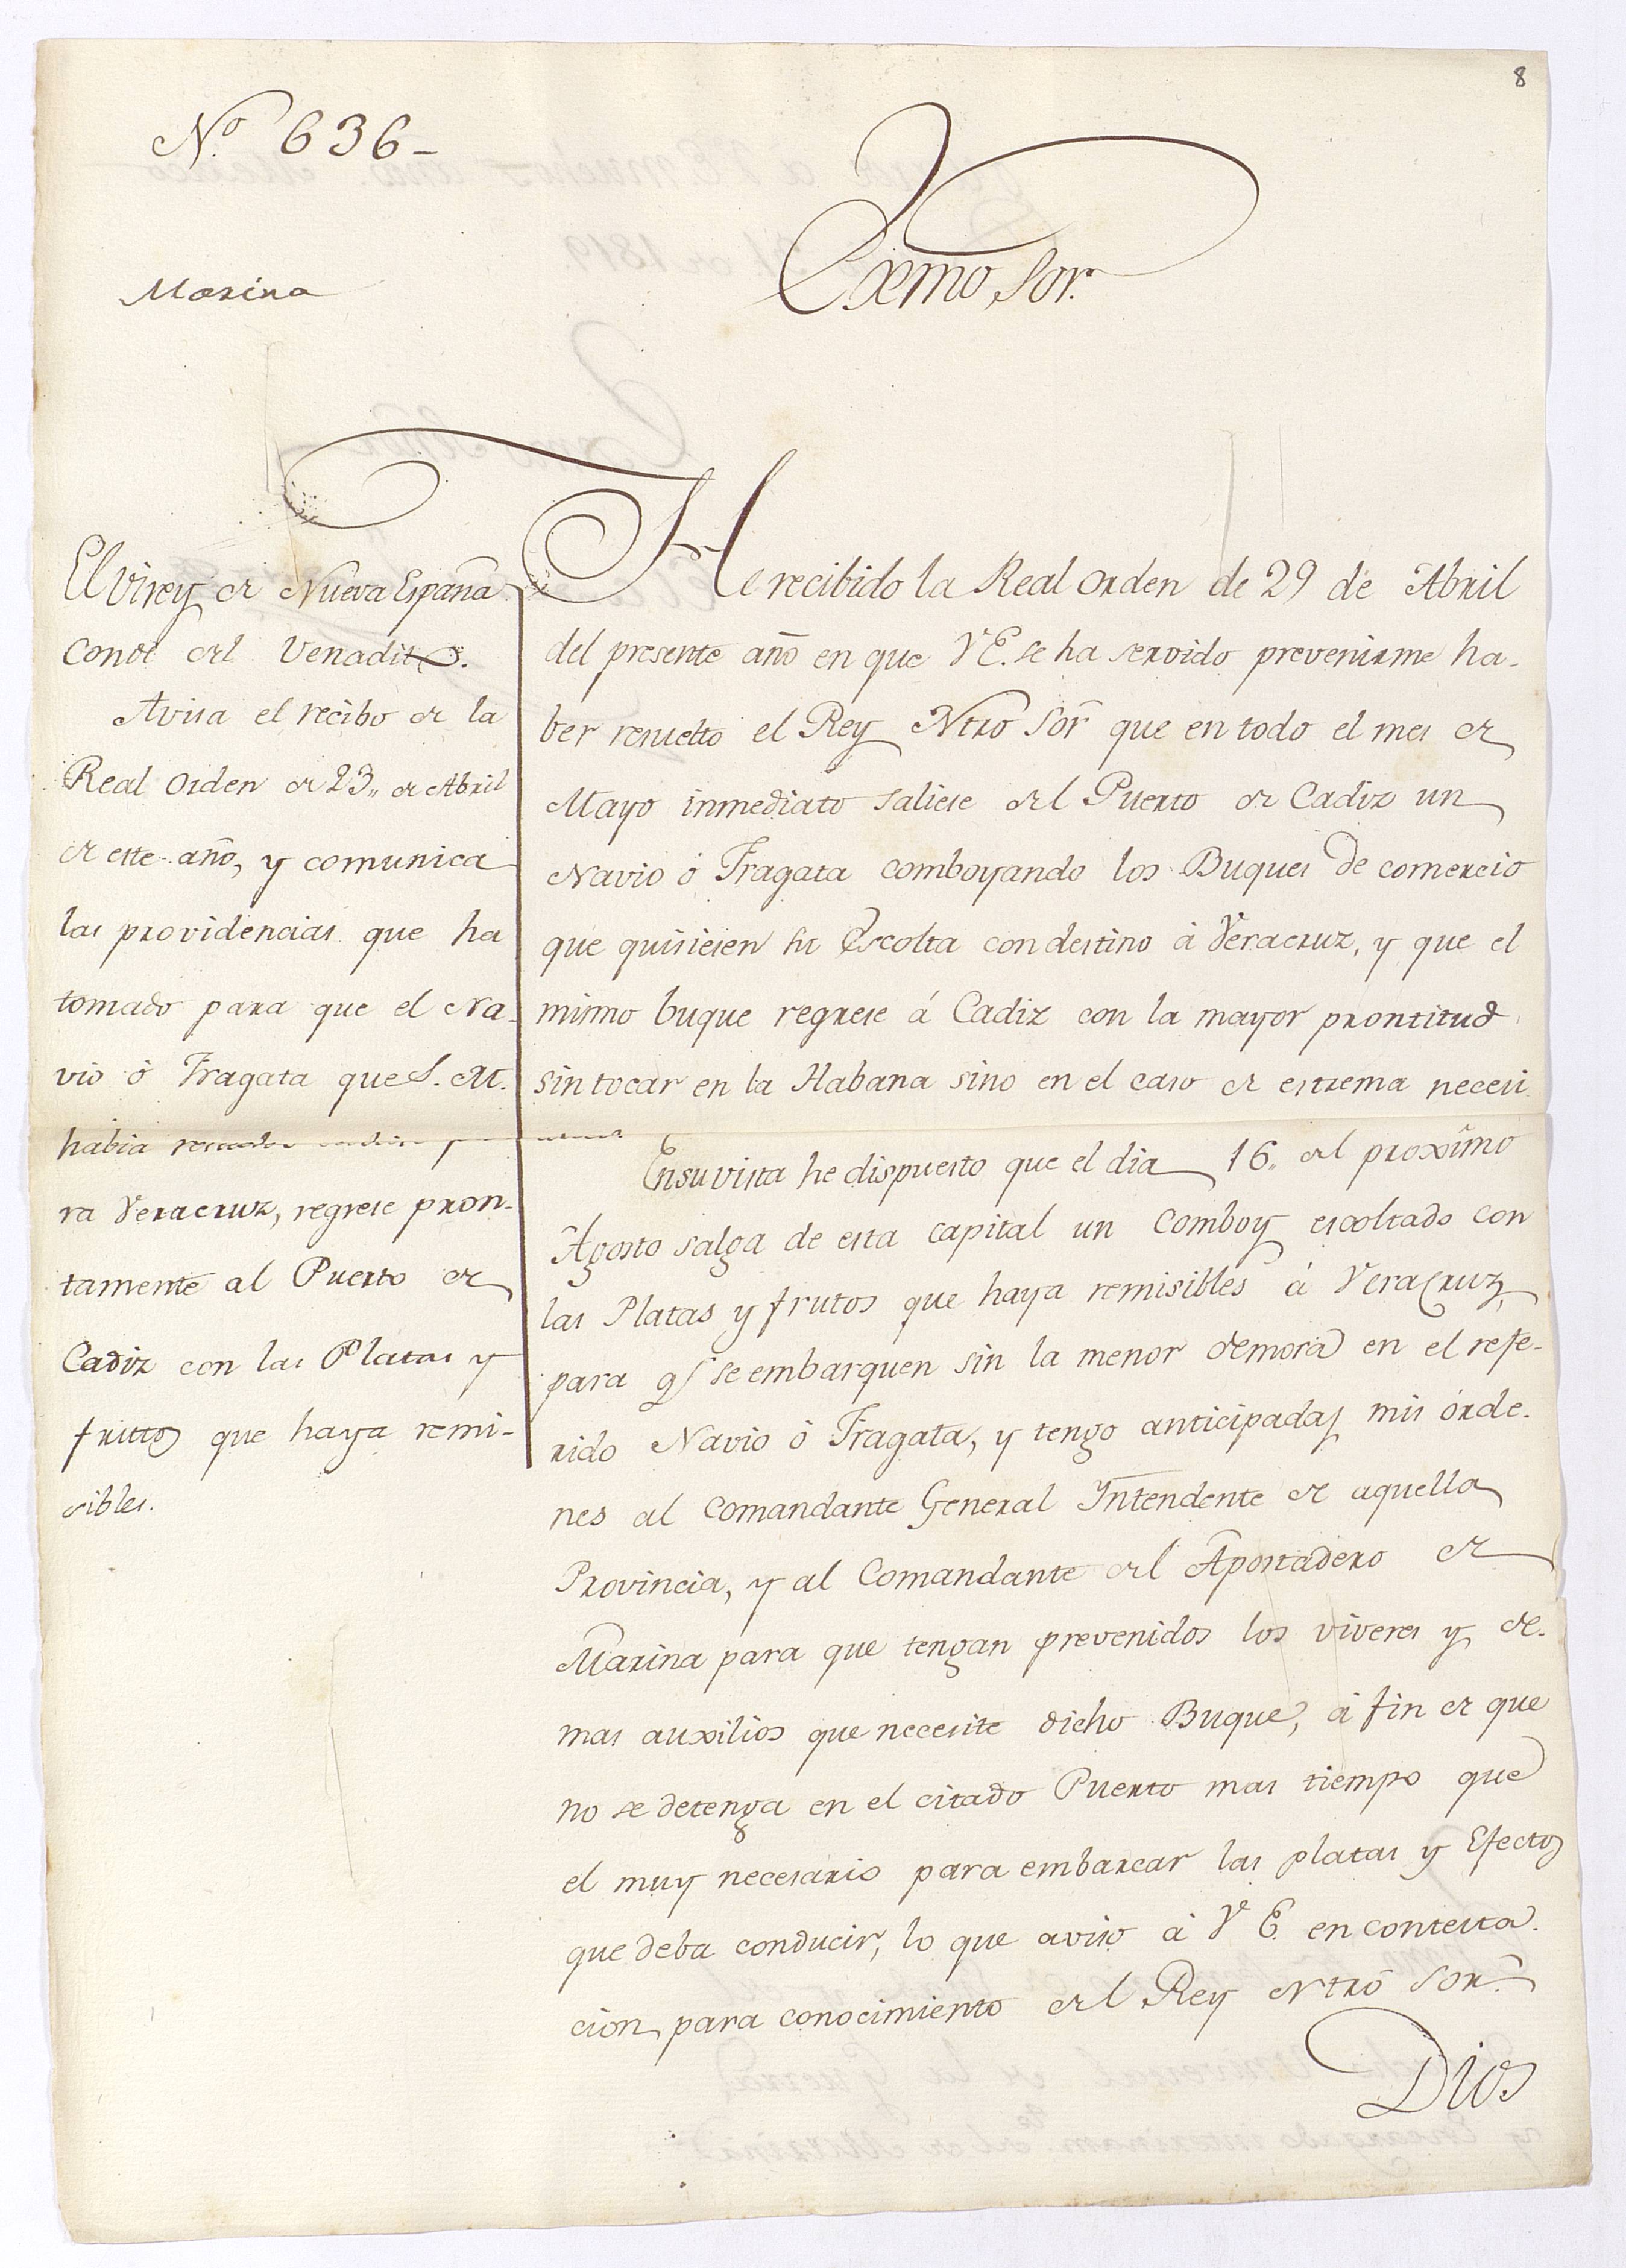 8
Nº 636-
Marina
Exmo Sor.
El virey de Nueva España
Conde del Venadito.
Avisa el recibo de la
Real orden de 23,, de Abril
de este año, y comunica
las providencias que ha
tomado para que el Na-
vio ó Fragata que S. M.
habia
ra Veracruz, regrese pron-
tamente al Puerto de
Cadiz con las Platas y
frutos que haya remi-
sibles.
He recibido la Real orden de 29 de Abril
del presente año en que V.E. se ha servido prevenirme ha-
ber resuelto el Rey Ntro Sor que en todo el mes de
Mayo inmediato saliese del Puerto de Cadiz un
Navio ó Fragata comboyando los Buques de comercio
que quisiesen su Escolta con destino á Veracruz, y que el
mismo buque regrese á Cadiz con la mayor prontitud
sin tocar en la Habana sino en el caso de estrema necesi
En su vista he dispuesto que el dia 16,, del proximo
Agosto salga de esta capital un Comboy escoltado con
las Platas y frutos que haya remisibles á Veracruz,
para qe se embarquen sin la menor demora en el refe-
rido Navio ó Fragata, y tengo anticipadas mis órde-
nes al Comandante General Yntendente de aquella
Provincia, y al Comandante del Apostadero de
Marina para que tengan prevenidos los viveres y de-
mas auxilios que necesite dicho Buque, á fin de que
no se detenga en el citado Puerto mas tiempo que
el muy necesario para embarcar las platas y Efectos
que deba conducir, lo que aviso á V. E. en contesta-
cion para conocimiento del Rey Ntro Sor.
Dios